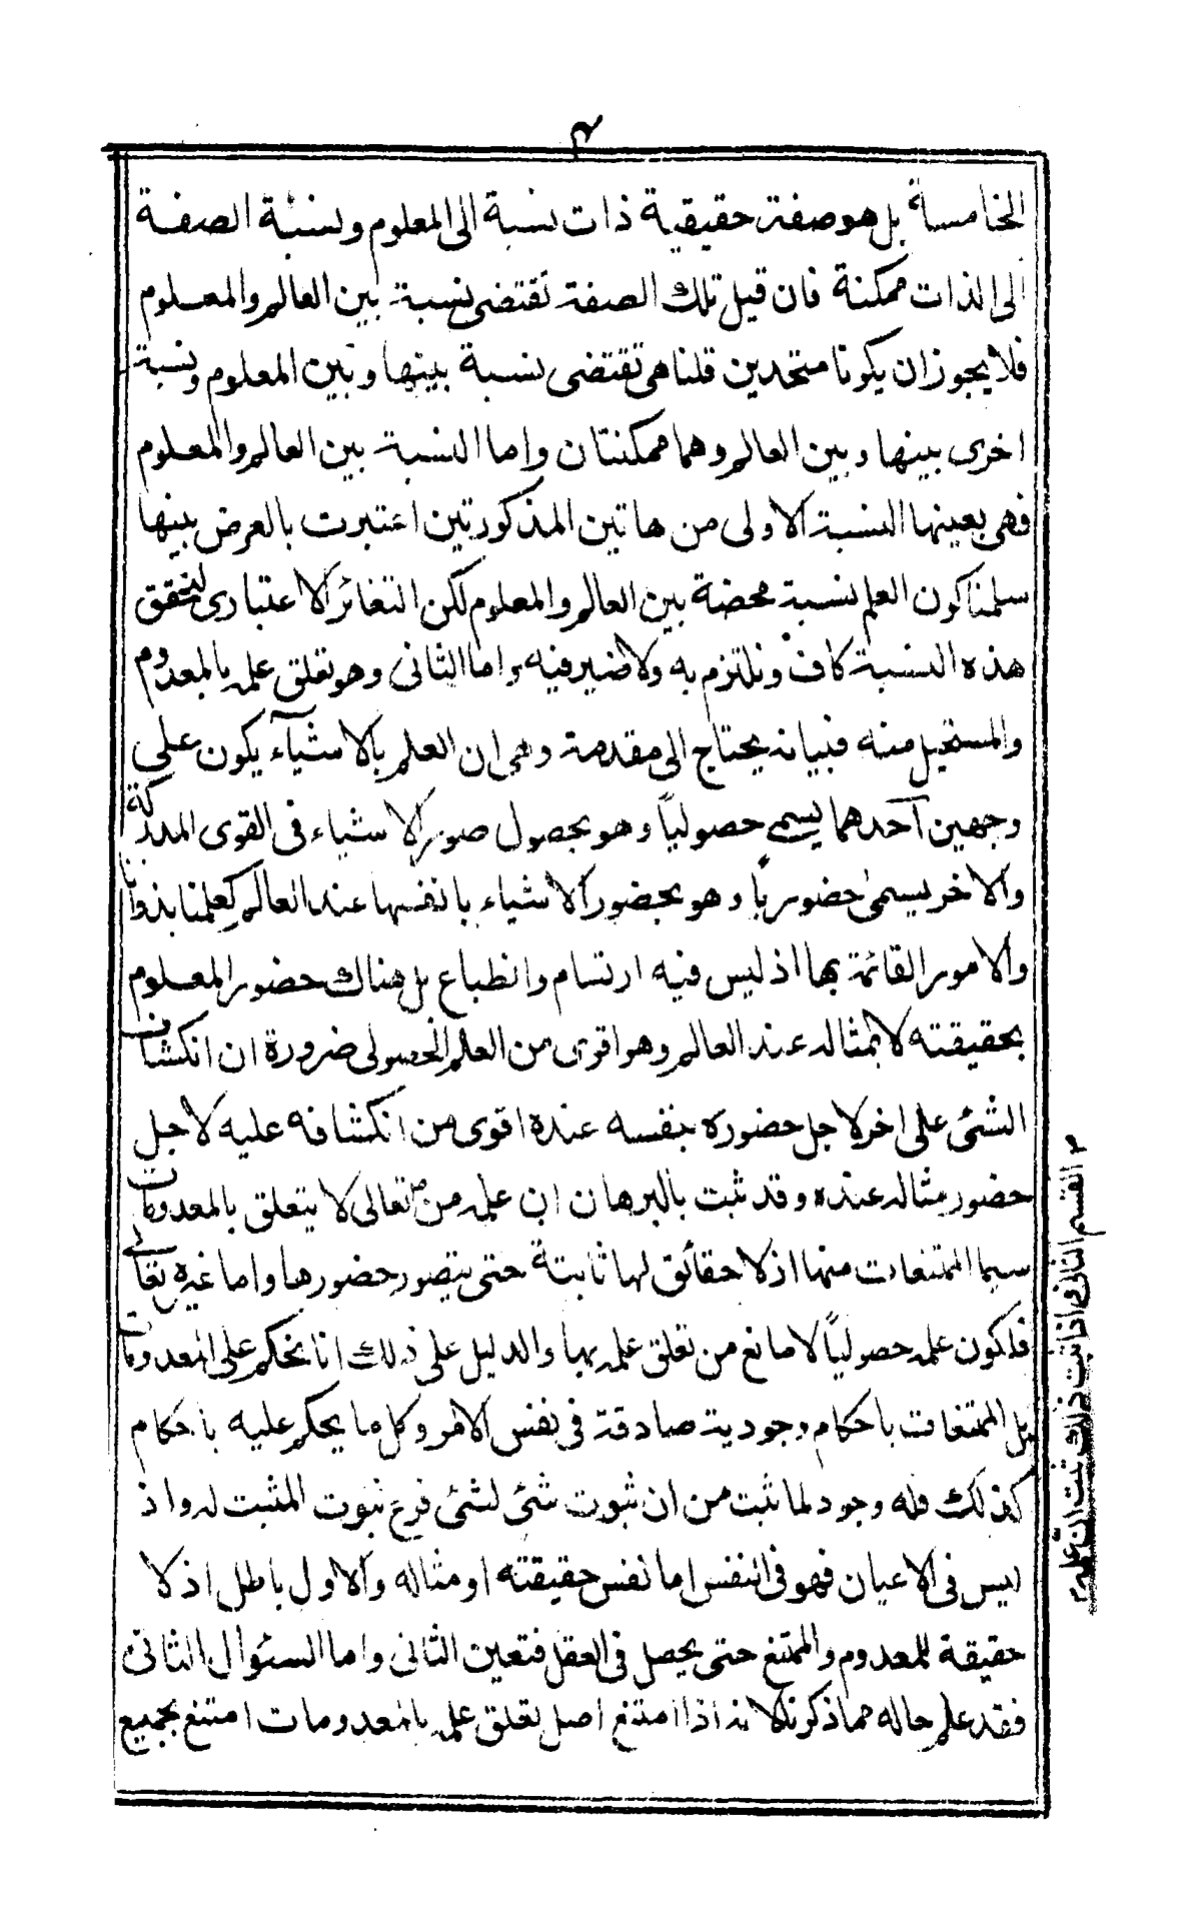 ٣
الخامسة بل هو صفة حقيقية ذات نسبة الى المعلوم ونسبة الصفة
الى الذات ممكنة فان قيل تلك الصفة تقتضى نسبة بين العالم والمعلوم
فلا يجوز ان يكونا متحدين قلنا هى تقتضى نسبة بينها وبين المعلوم ونسبة
اخرى بينها وبين العالم وهما ممكنتان واما النسبة بين العالم والمعلوم
فهى بعينها النسبة الاولى من هاتين المذكورتين اعتبرت بالعرض بينها
سلمنا كون العلم نسبة محضة بين العالم والمعلوم لكن التغائر الاعتبارى لتحقق
هذه النسبة كاف ونلتزم به ولا ضير فيه واما الثانى وهو تعلق علمه بالمعدوم
والمستحيل منه فبيانه يحتاج الى مقدمة وهى ان العلم بالاشيآء يكون على
وجهين آحدهما يسمى حصولياً وهو بحصول صور الاشياء فى القوى المدركة
والاخر يسمى حضورياً وهو بحضور الاشياء بانفسها عند العالم كعلمنا بذواتنا
والامور القائمة بها اذ ليس فيه ارتسام وانطباع بل هناك حضور المعلوم
بحقيقته لا بمثاله عند العالم وهو اقوى من العلم الحصولى ضرورة ان انكشاف
الشئ على اخر لاجل حضوره بنفسه عنده اقوى من انكشافه عليه لاجل
حضور مثاله عنده وقد ثبت بالبرهان ان علمه من تعالى لا يتعلق بالمعدومات
سيما الممتنعات منها اذ لا حقائق لها ثابتة حتى يتصور حضورها واما غيره تعالى
فلكون علمه حصولياً لا مانع من تعلق علمه بها والدليل على ذلك انا نحكم على المعدومات
بل الممتنعات باحكام وجودية صادقة فى نفس الامر وكل ما يحكم عليه باحكام
كذلك فله وجود لما ثبت من ان ثبوت شئ لشئ فرع ثبوت المثبت له واذ
ليس فى الاعيان فهو فى النفس اما نفس حقيقته او مثاله والاول باطل اذ لا
حقيقة للمعدوم والممتنع حتى يحصل فى العقل فتعين الثانى واما السئوال الثانى
فقد علم حاله مما ذكرنا لانه اذا امتنع اصل تعلق علمه بالمعدومات امتنع بجميع
القسم الثانى اذا ثبت ذلك ثبت ان علمه